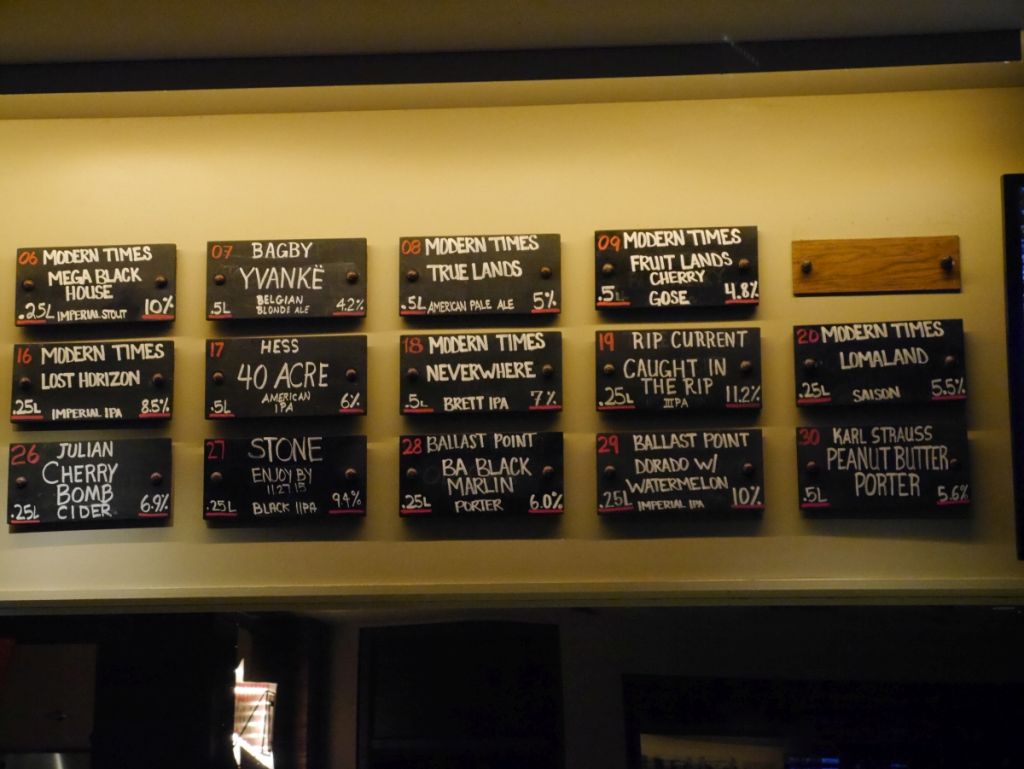 06 MODERN TIMES
MEGA BLACK
HOUSE
.25L IMPERIAL STOUT 10%
07 BAGBY
YVANKË
BELGIAN
BLONDE ALE
.5L 4.2%
08 MODERN TIMES
TRUE LANDS
.5L AMERICAN PALE ALE 5%
09 MODERN TIMES
FRUIT LANDS
CHERRY
.5L GOSE 4.8%
16 MODERN TIMES
LOST HORIZON
.25L IMPERIAL IPA 8.5%
17 HESS
40 ACRE
AMERICAN
.5L IPA 6%
18 MODERN TIMES
NEVERWHERE
.5L BRETT IPA 7%
19 RIP CURRENT
CAUGHT IN
THE RIP
.25L IIIPA 11.2%
20 MODERN TIMES
LOMALAND
.25L SAISON 5.5%
26 JULIAN
CHERRY
BOMB
.25L CIDER 6.9%
27 STONE
ENJOY BY
11.27.15
.25L BLACK IIPA 9.4%
28 BALLAST POINT
BA BLACK
MARLIN
.25L PORTER 6.0%
29 BALLAST POINT
DORADO W/
WATERMELON
.25L IMPERIAL IPA 10%
30 KARL STRAUSS
PEANUT BUTTER
PORTER
.5L 5.6%